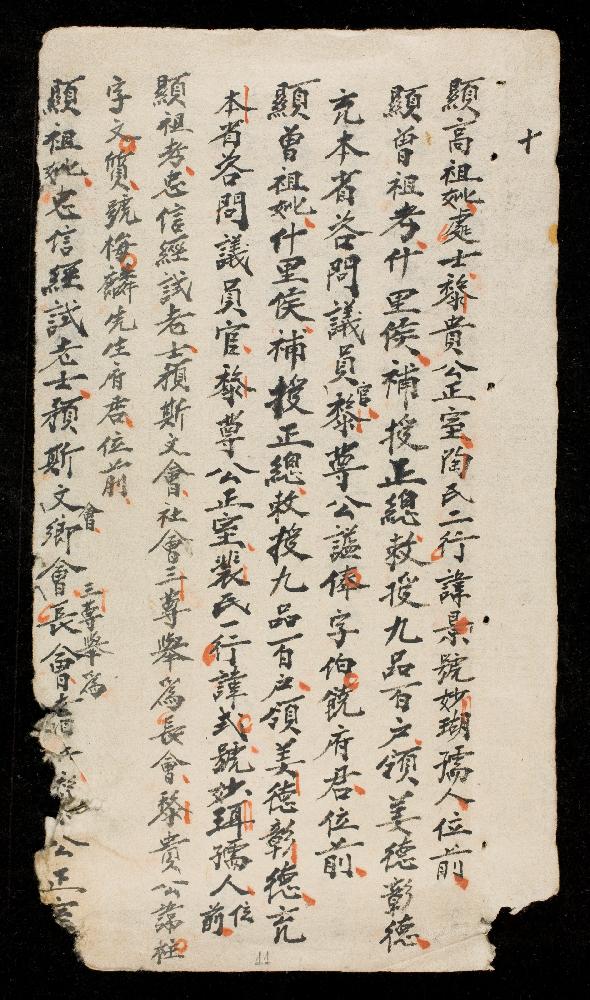 十
顯高祖妣處士黎貴公正室陶氏二行諱景號妙瑚孺人位前
顯曾祖考什里侯補授正總敕授九品百户領美德彰德
充本省咨問議員官黎尊公謚俸字伯饒府君位前
顯曾祖妣什里侯補授正總敕授九品百户領美德彰德充
本省咨問議員官黎尊公正室裴氏一行諱弍號妙珥孺人位前
顯祖考忠信經試老士預斯文會社會三尊舉爲長會黎貴公諱柱
字文質號梅麟先生府君位前
會 三尊舉爲
顯祖妣忠信經試老士預斯文鄉會長會 公正室